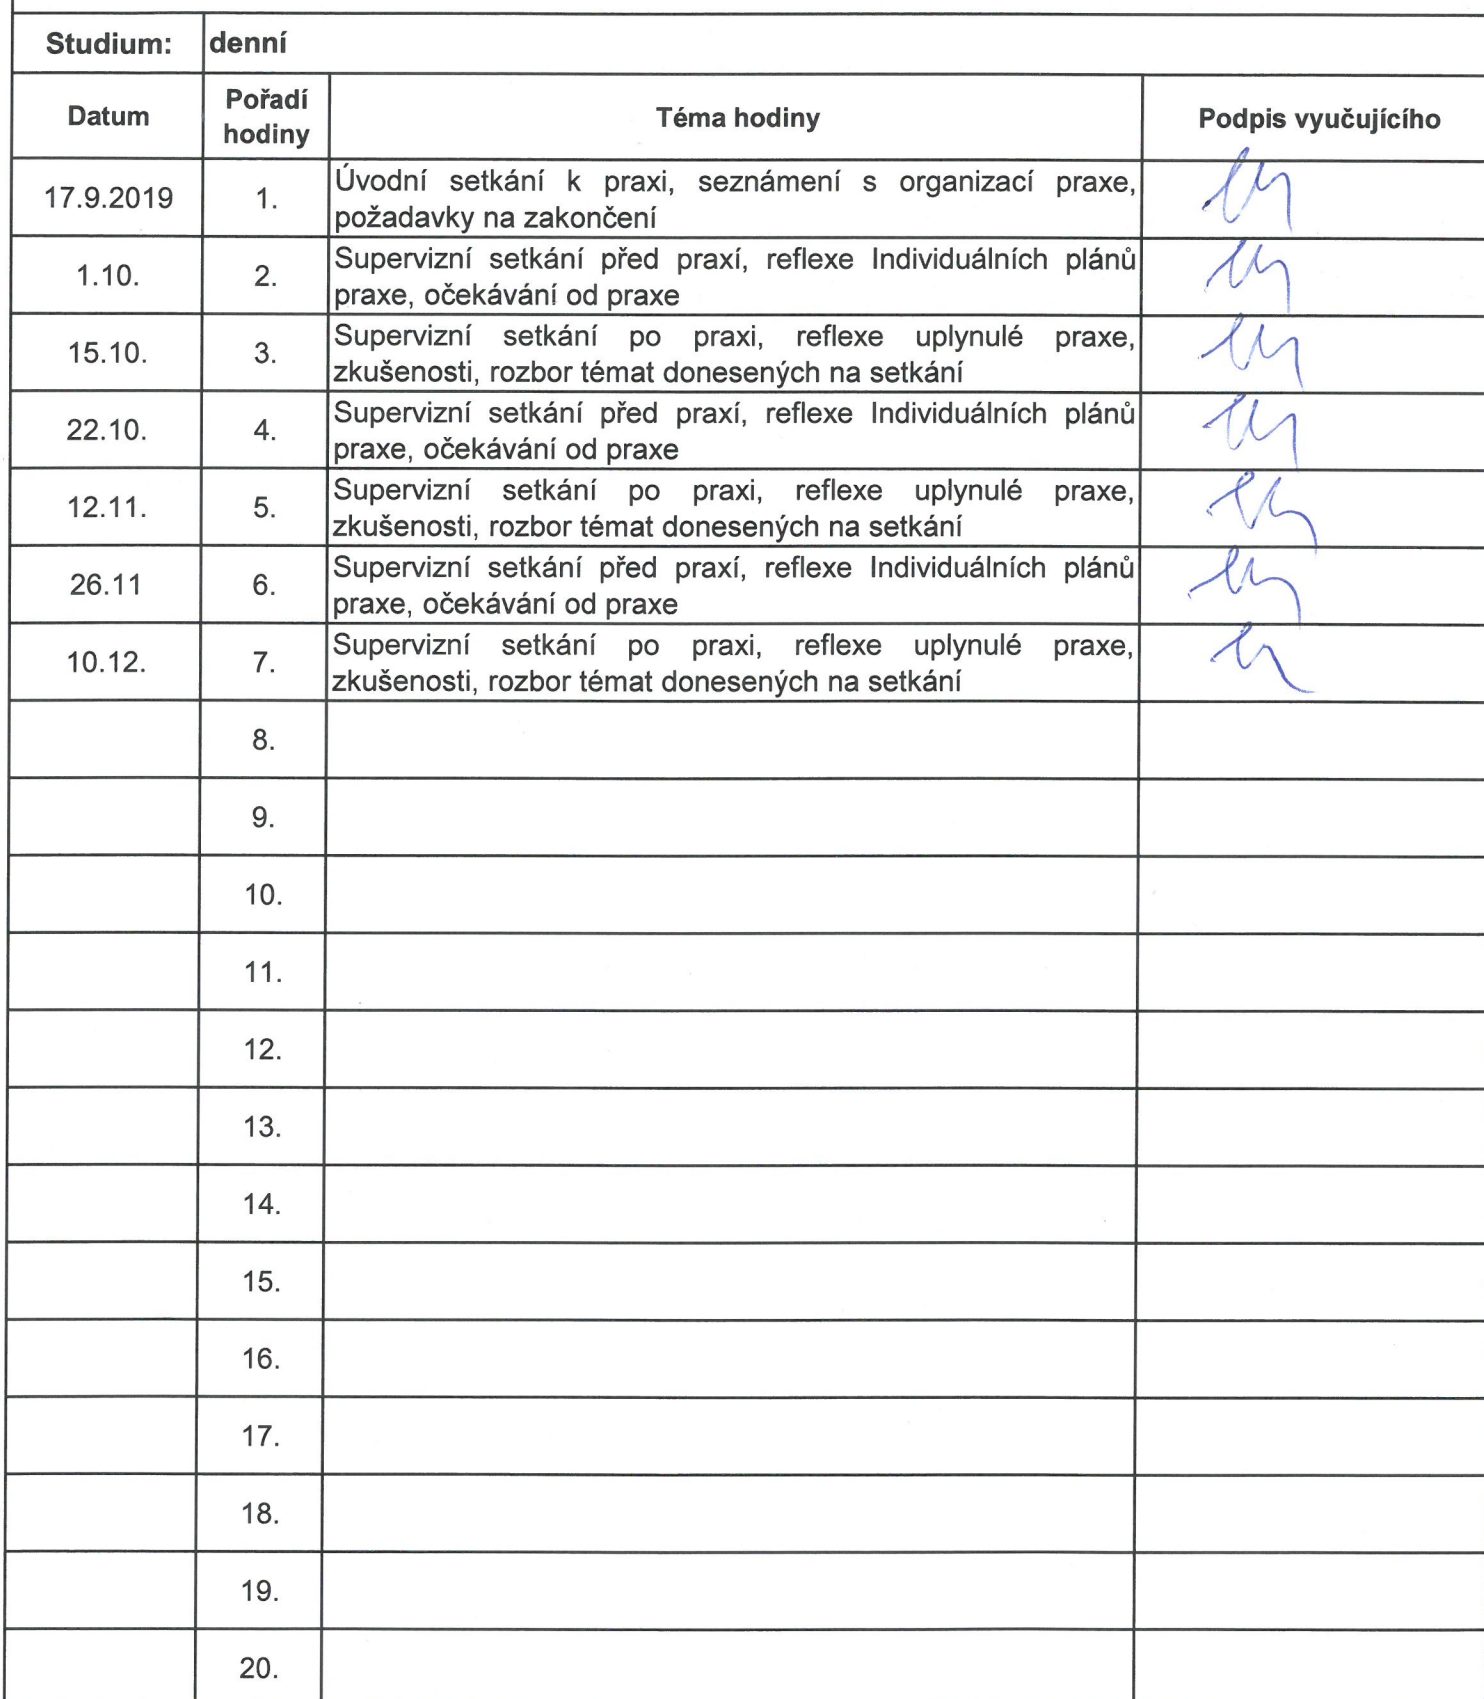 Studium: denní
Datum Pořadí hodiny Téma hodiny Podpis vyučujícího
17.9.2019 1. Úvodní setkání k praxi, seznámení s organizací praxe,
požadavky na zakončení
1.10. 2. Supervizní setkání před praxí, reflexe Individuálních plánů
praxe, očekávání od praxe
15.10. 3. Supervizní setkání po praxi, reflexe uplynulé praxe,
zkušenosti, rozbor témat donesených na setkání
22.10. 4. Supervizní setkání před praxí, reflexe Individuálních plánů
praxe, očekávání od praxe
12.11. 5. Supervizní setkání po praxi, reflexe uplynulé praxe,
zkušenosti, rozbor témat donesených na setkání
26.11 6. Supervizní setkání před praxí, reflexe Individuálních plánů
praxe, očekávání od praxe
10.12. 7. Supervizní setkání po praxi, reflexe uplynulé praxe,
zkušenosti, rozbor témat donesených na setkání
8.
9.
10.
11.
12.
13.
14.
15.
16.
17.
18.
19.
20.